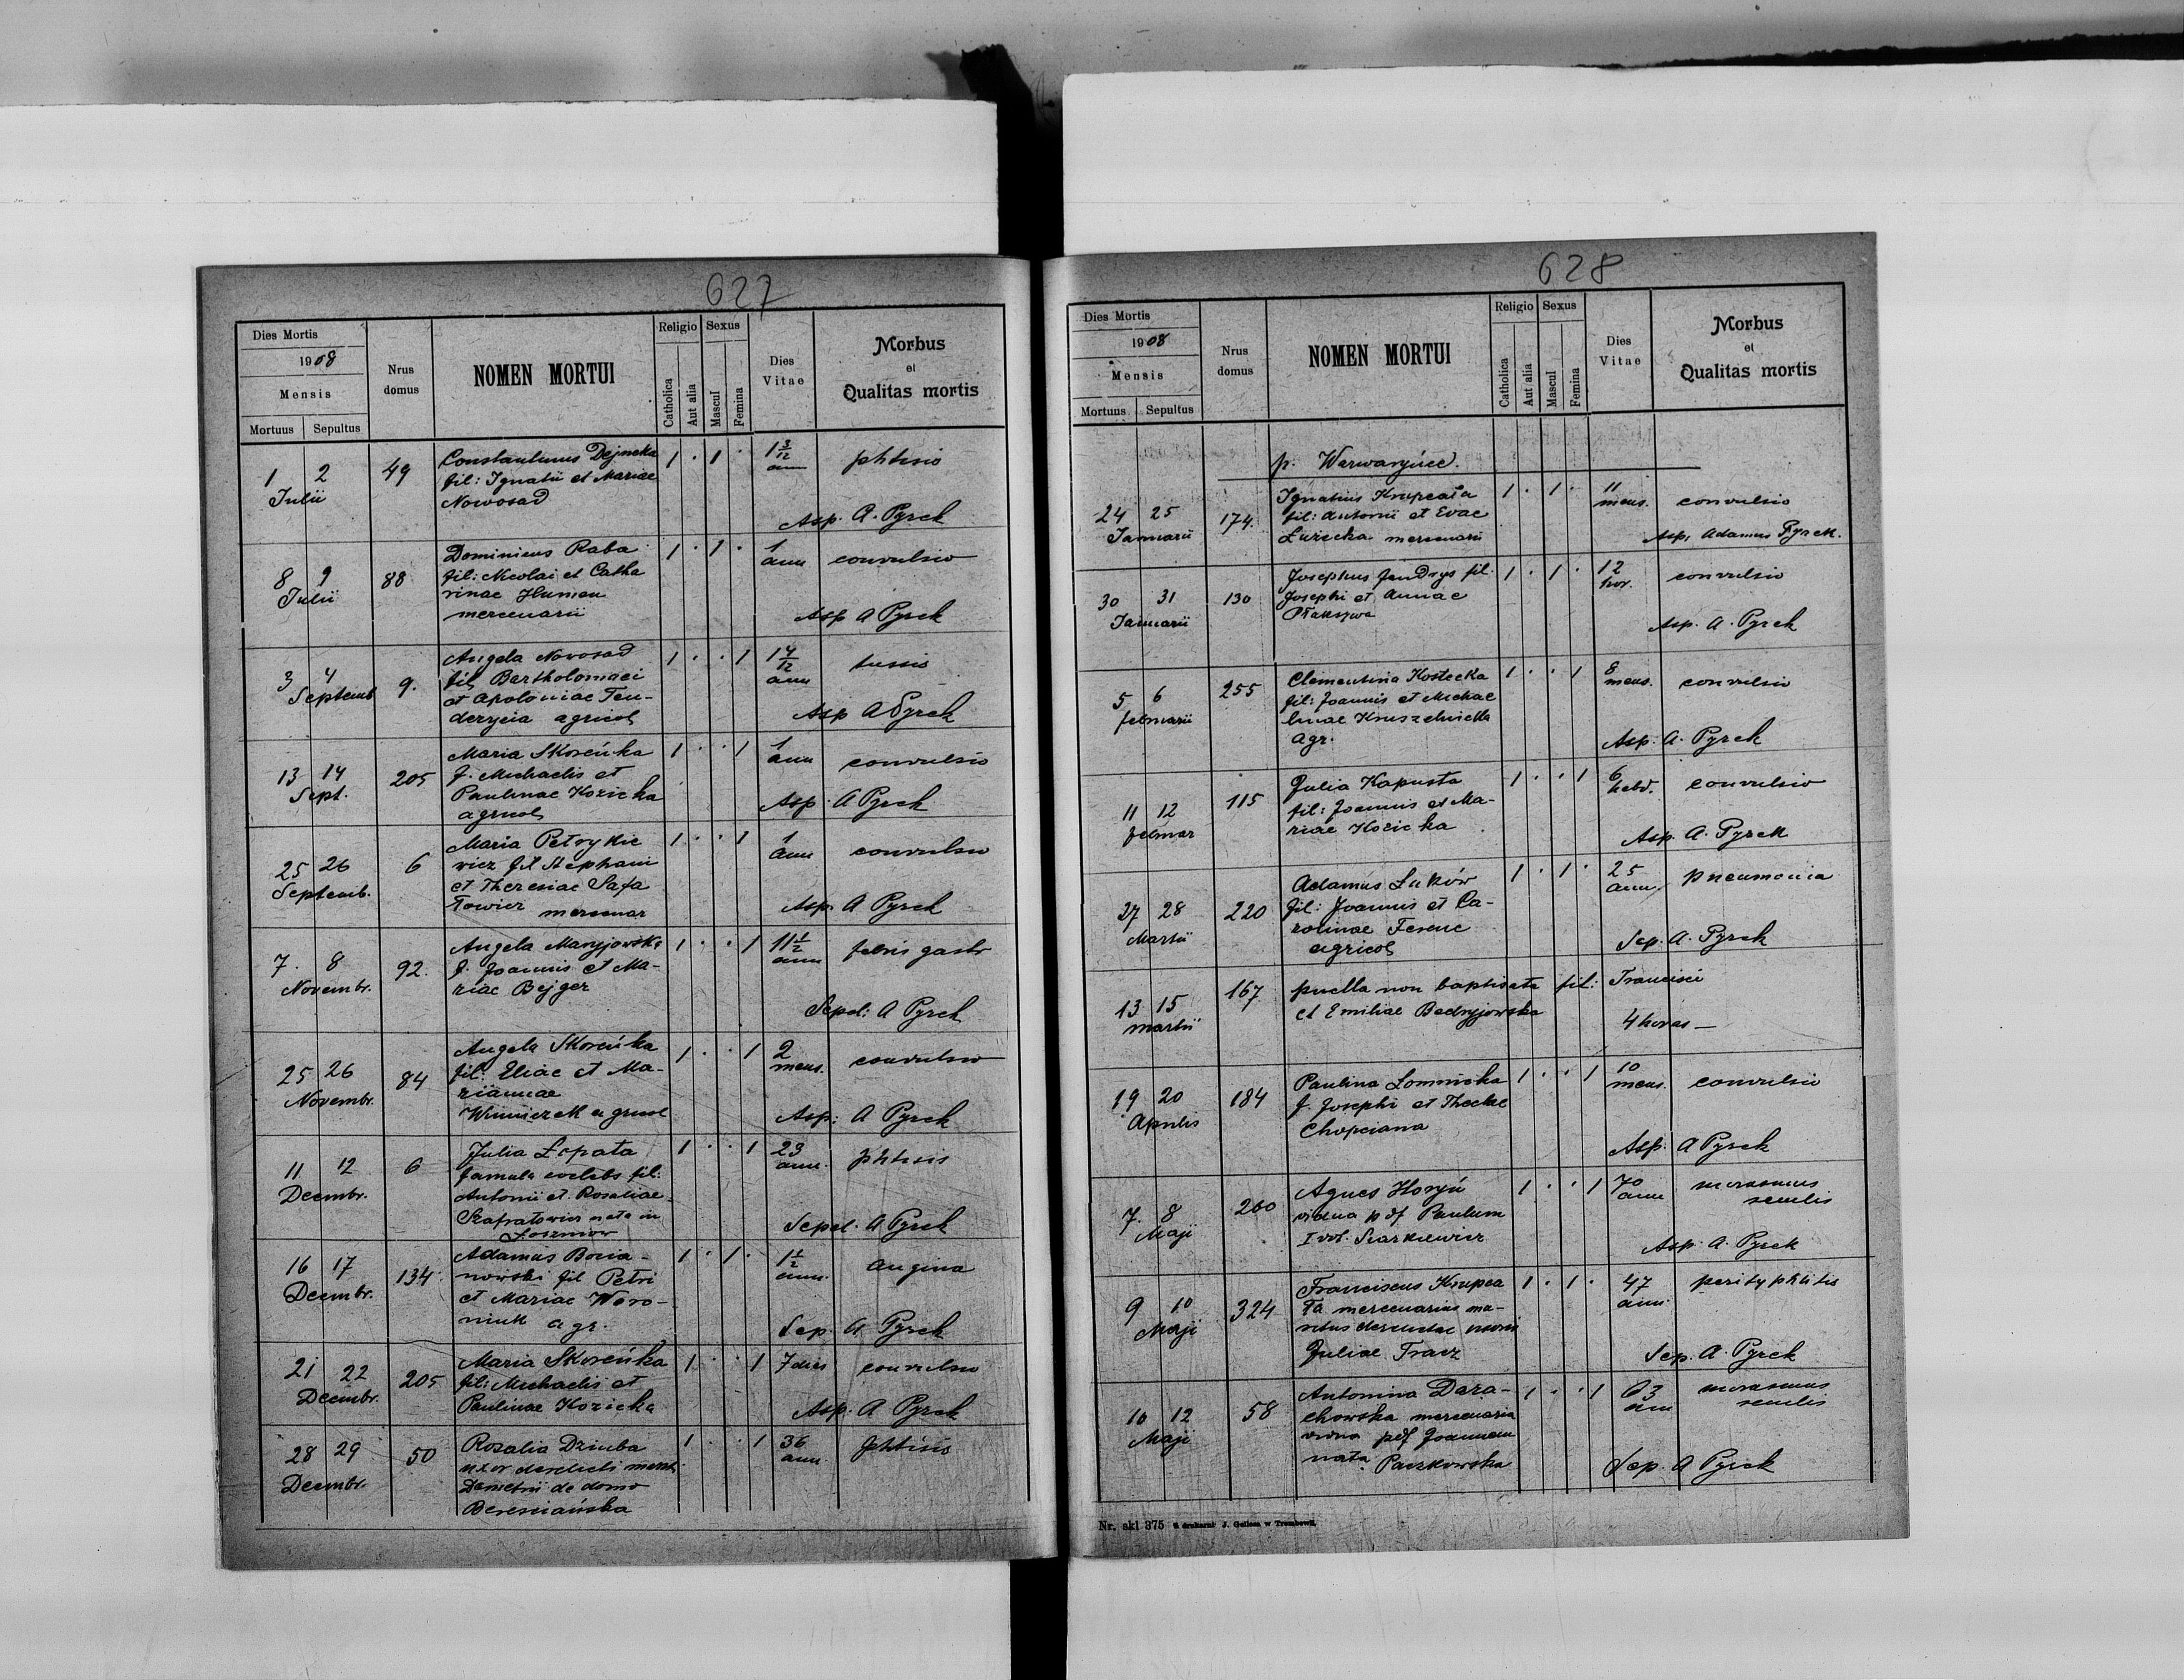 627
Dies Mortis
1908
Mensis
Mortuus Sepultus
Nrus domus
NOMEN MORTUI
Religio Sexus
Catholica Aut alia Mascul Femina
Dies Vitae
Morbus
et
Qualitas mortis
1 2 49 Constantinus Dejneka 1 · 1 · 1 3/12 phtisis
Julii fil: Ignatii et Mariae ann
Nowosad
Asp. A. Pyrek
8 9 88 Dominicus Raba 1 · 1 · 1 convulsio
Julii fil: Nicolai et Catha ann
rinae Humen
mercenarii Asp A Pyrek
3 4 9. Angela Nowosad 1 · · 1 1 4/12 tussis
Septemb fil Bartholomaei ann
et Apoloniae Ten-
derycia agricol Asp A Pyrek
13 14 205 Maria Skoreńka 1 · · 1 1 convulsio
Sept. f. Michaelis et ann
Paulinae Kozicka Asp. A Pyrek
agricol
25 26 6 Maria Petrykie 1 · · 1 1 convulsio
Septemb. wicz fil Stephani ann
et Theresiae Safa
towicz mercenar Asp. A Pyrek
7. 8 92. Angela Maryjowska 1 · · 1 11 1/2 febris gastr
Novembr. f. Joannis et Ma- ann
riae Bejger
Sepel: A Pyrek
25 26 84 Angela Skoreńka 1 · · 1 2 convulsio
Novembr. fil: Eliae et Ma- mens.
riannae
agricol Asp: A Pyrek
11 12 6 Julia Łopata 1 · · 1 23 phtisis
Decembr. famula coelebs fil: ann.
Antonii et Rosaliae
Szafratowicz nata in Sepel. A Pyrek
Łoszniow
16 17 134. Adamus Bocia- 1 · 1 · 1 1/2 angina
Decembr. nowski fil Petri ann.
et Mariae Woro-
niuk agr. Sep. A Pyrek
21 22 205 Maria Skoreńka 1 · · 1 7 dies convulsio
Decembr. fil: Michaelis et
Paulinae Kozicka Asp. A Pyrek
28 29 50 Rozalia Dziuba 1 · · 1 36 phtisis
Decembr. uxor derelicti ann.
Demetrii de domo
628
Dies Mortis
1908
Mensis
Mortuus Sepultus
Nrus domus
NOMEN MORTUI
Religio Sexus
Catholica Aut alia Mascul Femina
Dies Vitae
Morbus
et
Qualitas mortis
p. Warwaryńce.
24 25 174. Ignatius Krupcała 1 · 1 · 11 convulsio
Januarii fil: Antonii et Evae mens.
Łuzecka mercenarii Asp. Adamus Pyrek.
30 31 130 Josephus Jendrys fil. 1 · 1 · 12 convulsio
Januarii Josephi et Annae hor.
Asp. A. Pyrek
5 6 255 Clementina Kostecka 1 · · 1 8 convulsio
februarii fil: Joannis et Michae mens.
linae Kruszelnicka
agr. Asp: A. Pyrek
11 12 115 Julia Kapusta 1 · · 1 6 convulsio
februar fil: Joannis et Ma- hebd.
riae Kozicka Asp. A. Pyrek
27 28 220 Adamus Łuków 1 · 1 · 25 pneumonia
Martii fil: Joannis et Ca- ann.
rolinae Ferenc
agricol Sep. A. Pyrek
13 15 167 puella non baptisata fil: Francisci
martii et Emiliae Bedryjowska 4 horas —
19 20 184 Paulina Łomnicka 1 · · 1 10 convulsio
Aprilis f. Josephi et Theclae mens.
Chopciana
Asp. A Pyrek
7. 8 260 Agnes Horyń 1 · · 1 70 marasmus
Maji vidua p df Paulum ann senilis
I vot. Szarkiewicz
Asp. A. Pyrek
9 10 324 Franciscus Krupca 1 · 1 · 47 perityphlitis
Maji ła mercenarius ma- ann
ritus derelictae uxoris
Juliae Tracz Sep. A. Pyrek
10 12 58 Antonina Dara- 1 · · 1 63 marasmus
Maji chowska mercenaria ann senilis
vidua pdf Joannem
nata Paczkowska Sep. A Pyrek
Nr. skl 375 Z drukarni J. Gellesa w Trembowli.